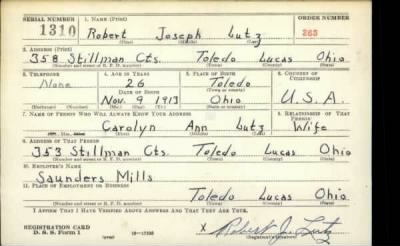 SERIAL NUMBER 1. NAME (Print) ORDER NUMBER
1310 Robert Joseph Lutz 265
(First) (Middle) (Last)
2. ADDRESS (Print)
358 Stillman Cts. Toledo Lucas Ohio
(Number and street or R. F. D. number) (Town) (County) (State)
3. TELEPHONE 4. AGE IN YEARS 5. PLACE OF BIRTH 6. COUNTRY OF CITIZENSHIP
None 26 Toledo
(Town or county)
DATE OF BIRTH
Nov. 9 1913 Ohio U.S.A.
(Exchange) (Number) (Mo.) (Day) (Yr.) (State or country)
7. NAME OF PERSON WHO WILL ALWAYS KNOW YOUR ADDRESS 8. RELATIONSHIP OF THAT PERSON
Carolyn Ann Lutz Wife
(First) (Middle) (Last)
9. ADDRESS OF THAT PERSON
353 Stillman Cts. Toledo Lucas Ohio
(Number and street or R. F. D. number) (Town) (County) (State)
10. EMPLOYER'S NAME
Saunders Mills
11. PLACE OF EMPLOYMENT OR BUSINESS
Toledo Lucas Ohio
(Number and street or R. F. D. number) (Town) (County) (State)
I AFFIRM THAT I HAVE VERIFIED ABOVE ANSWERS AND THAT THEY ARE TRUE.
REGISTRATION CARD
D. S. S. Form 1 16-17105 X Robert J. Lutz
(Registrant's signature)